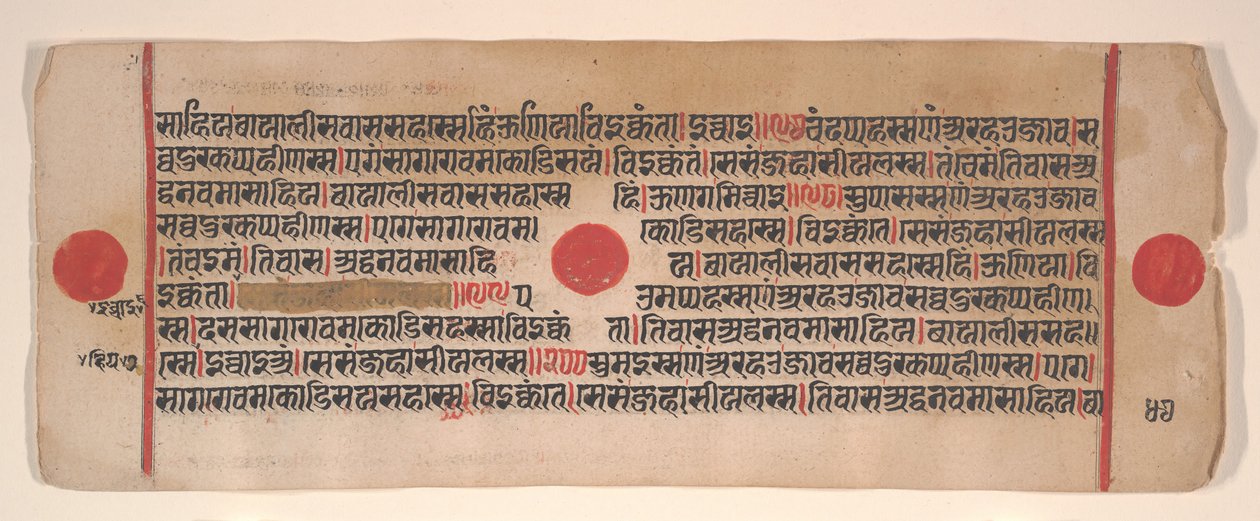 साहियबायालीसवाससहस्सेहिं ऊणिया।विइक्कंता। इच्चाइ॥१९७ चंदप्पहस्सणं अरहउजाव।स
व्वदुरकप्पहीणस्स।एगंसागरोवमकोडिसयं।विइक्कंतं।सेसंजहासीयलस्स।तंचमंतिवासअ
द्धनवमासाहिय।बायालीसवाससहस्से हिं।ऊणगमिच्चाइ॥१९८।सुपासस्सणंअरहउजाव
सव्वदुरकप्पहीणस्स।एगेसागरोवमा कोडिसहस्से।विइक्कंते।सेसंजहासीयलस्स
।तंचइमं।तिवास।अद्धनवमासाहि य।बायालीसवाससहस्सेहिं।ऊणिया।वि
इक्कंता। ॥१९९ प उमप्पहस्सणंअरहउजावसव्वदुरकप्पहीण।
स्स।दससागरोवमाकोडिसहस्साविइक्कं ता।तिवासअद्धनवमासाहिय।बायालीससह॥
स्से।इच्चाइअं।सेसंजहासीयलस्स॥२००सुमइस्सणंअरहउजावसव्वदुरकप्पहीणस्स।एगे।
सागरोवमाकोडिसयसहस्से।विइक्कंते।सेसंजहासीयलस्स।तिवासअद्धनवमासाहिय।बा
इच्चाइ